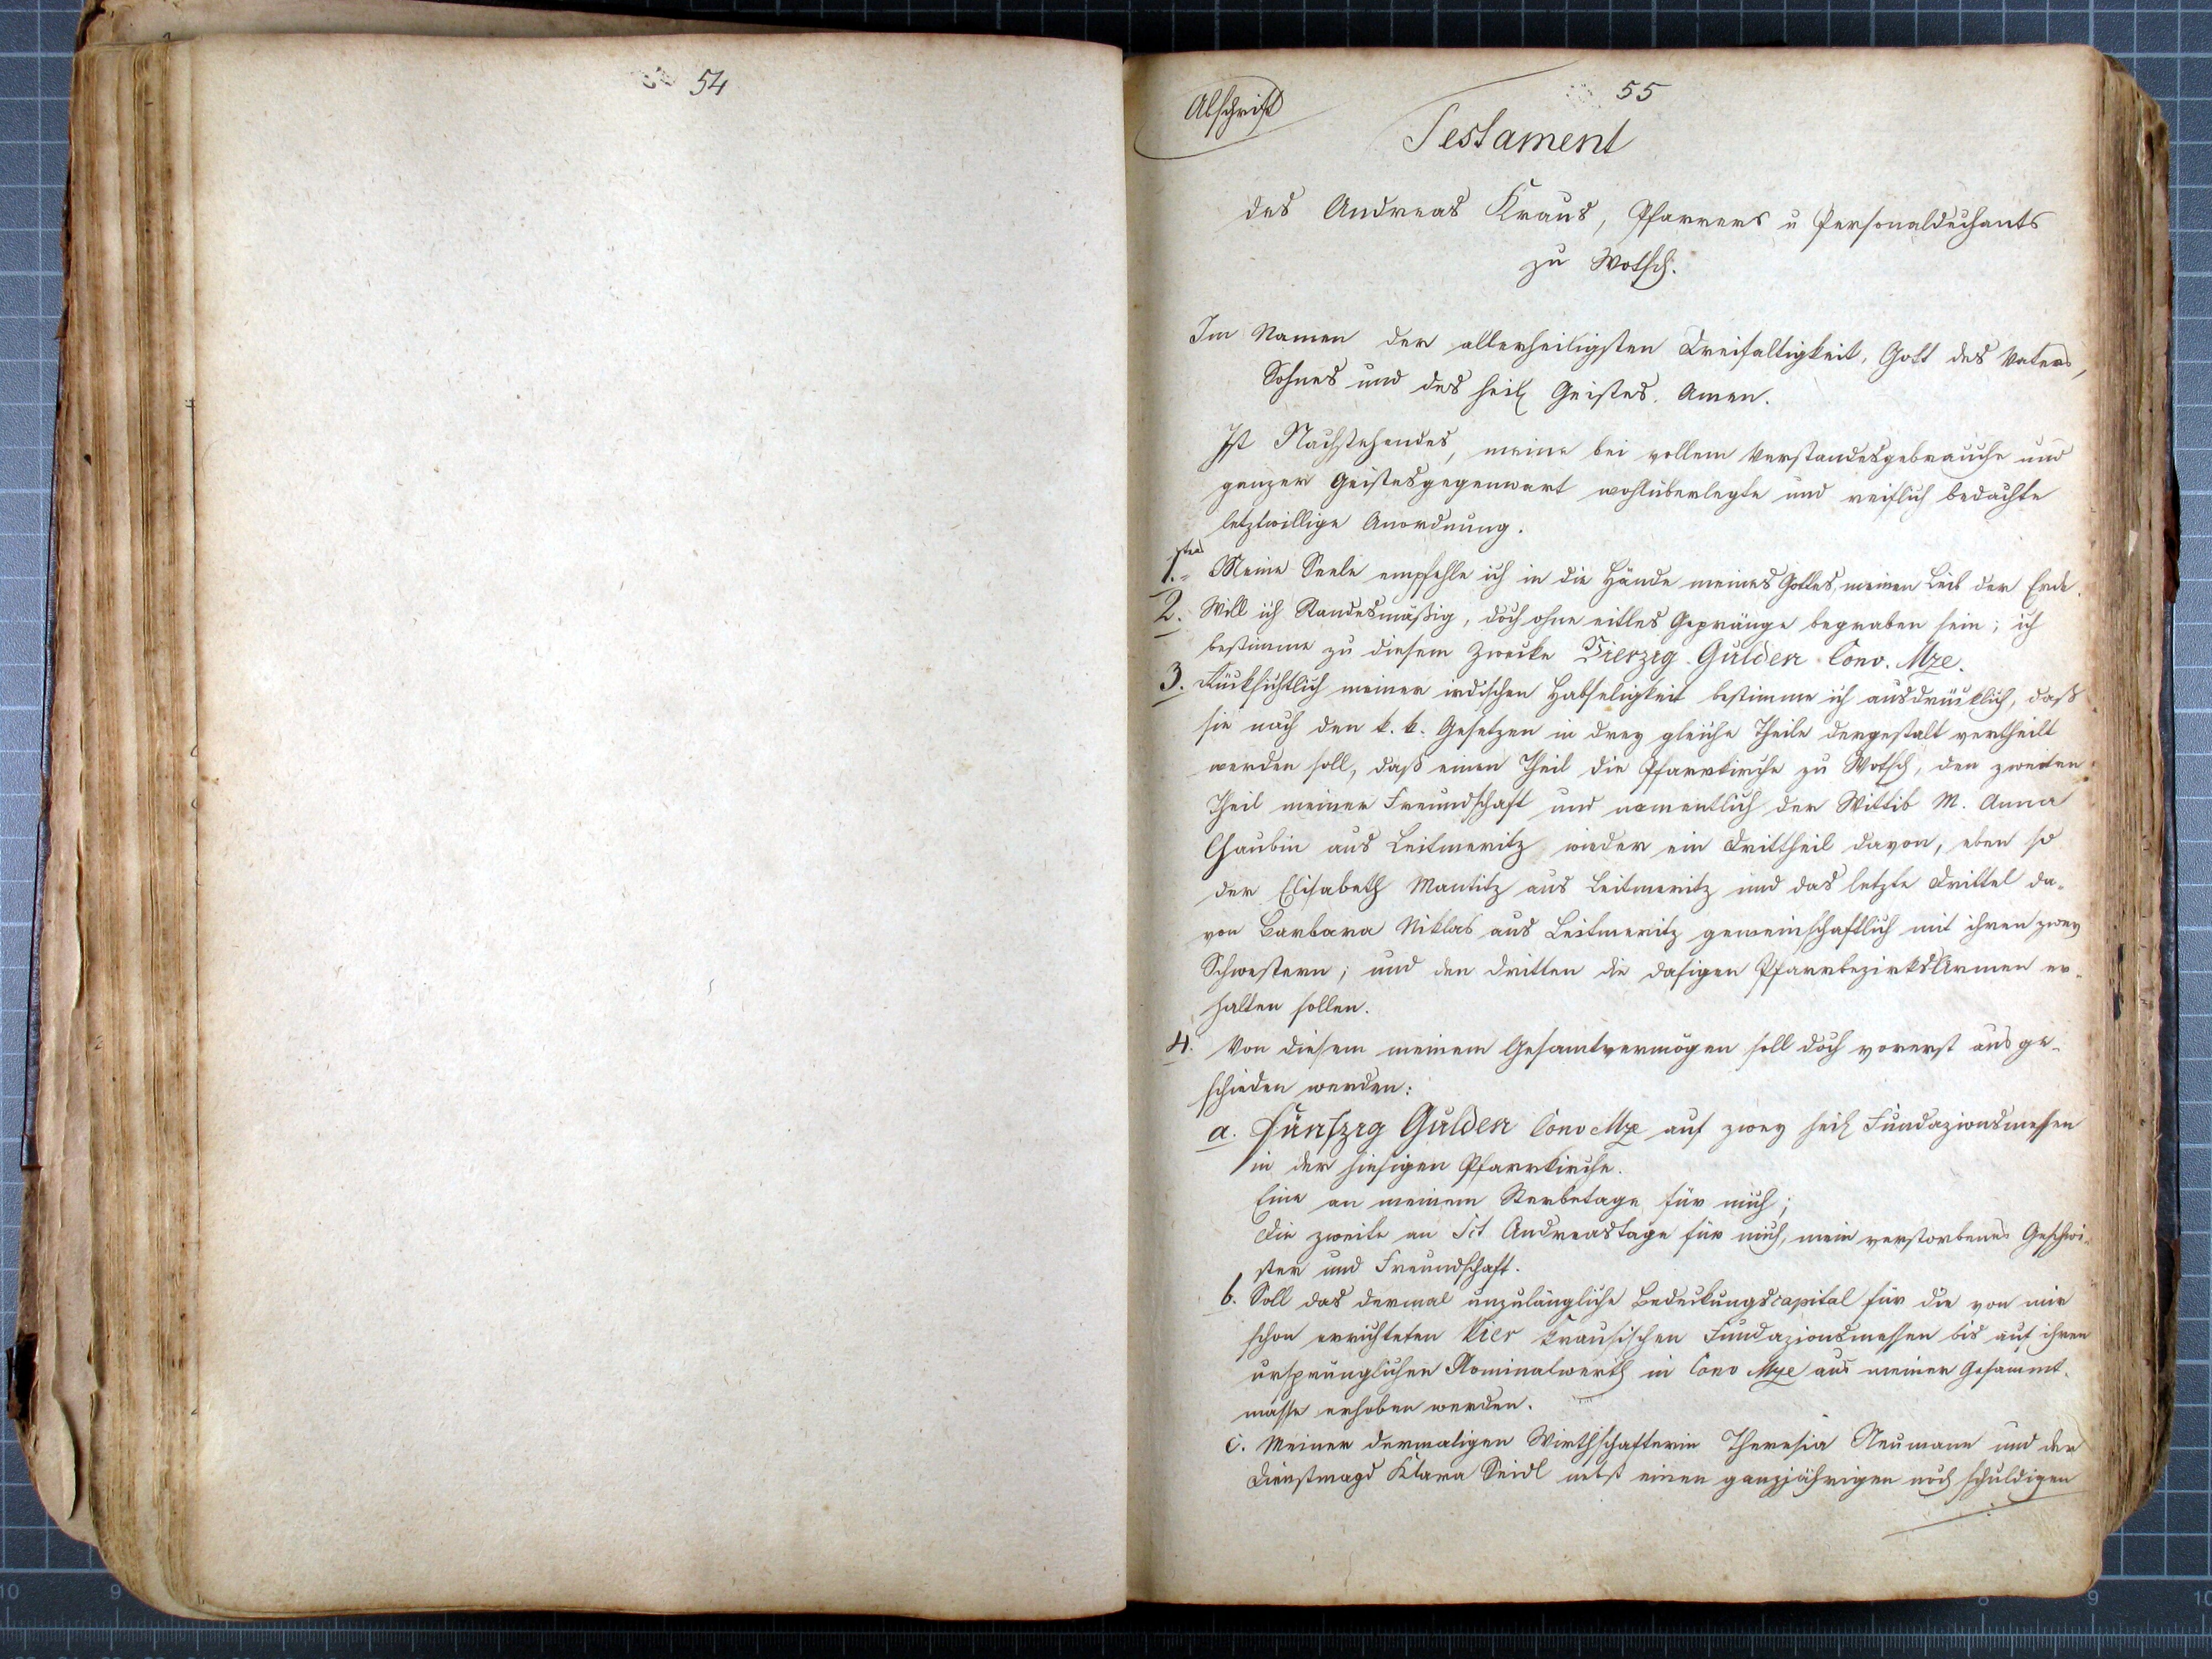 54
55
Abschrift
Testament
des Andreas Kraus, Pfarrers u Personaldechants
zu Wotsch.
Im Namen der allerheiligsten Dreifaltigkeit, Gott des Vaters,
Sohnes und des heil Geistes. Amen.
Ist Nachstehendes, meine bei vollem Verstandesgebrauche und
ganzer Geistesgegenwart wohlüberlegte und reiflich bedachte
letztwillige Anordnung.
1.stens Meine Seele empfehle ich in die Hände meines Gottes, meinen Leib der Erde.
2. Will ich Standesmäßig, doch ohne eitles Gepränge begraben sein; ich
bestimme zu diesem Zwecke Vierzig Gulden Conv. Mze.
3. Rücksichtlich meiner irdischen Habseligkeit bestimme ich ausdrücklich, daß
sie nach den k. k. Gesetzen in drey gleiche Theile dergestalt vertheilt
werden soll, daß einen Theil die Pfarrkirche zu Wotsch, den zweiten
Theil meiner Freundschaft und namentlich der Wittib M. Anna
aus Leitmeritz wieder ein Drittheil davon, eben so
der Elisabeth Mantitz aus Leitmeritz und das letzte Drittel da-
von Barbara Niklas aus Leitmeritz gemeinschaftlich mit ihren zwey
Schwestern; und den dritten die dasigen Pfarrbezirks Armen er-
halten sollen.
4. Von diesem meinem Gesamtvermögen soll doch vorerst ausge-
schieden werden:
a. Fünfzig Gulden Conv Mze auf zwey heil Fundazionsmessen
in der hiesigen Pfarrkirche.
Eine an meinem Sterbetage für mich;
die zweite an Sct Andreastage für mich, mein verstorbenes Geschwi-
ster und Freundschaft.
b. Soll das dermal unzulängliche Bedeckungscapital für die von mir
schon errichteten Vier Krausischen Fundazionsmessen bis auf ihren
ursprünglichen Nominalwerth in Conv Mze aus meiner Gesammt-
masse erhoben werden.
c. Meiner dermaligen Wirthschafterin Theresia Neumann und der
Dienstmagd Klara Seidl nebst einen ganzjährigen noch schuldigen